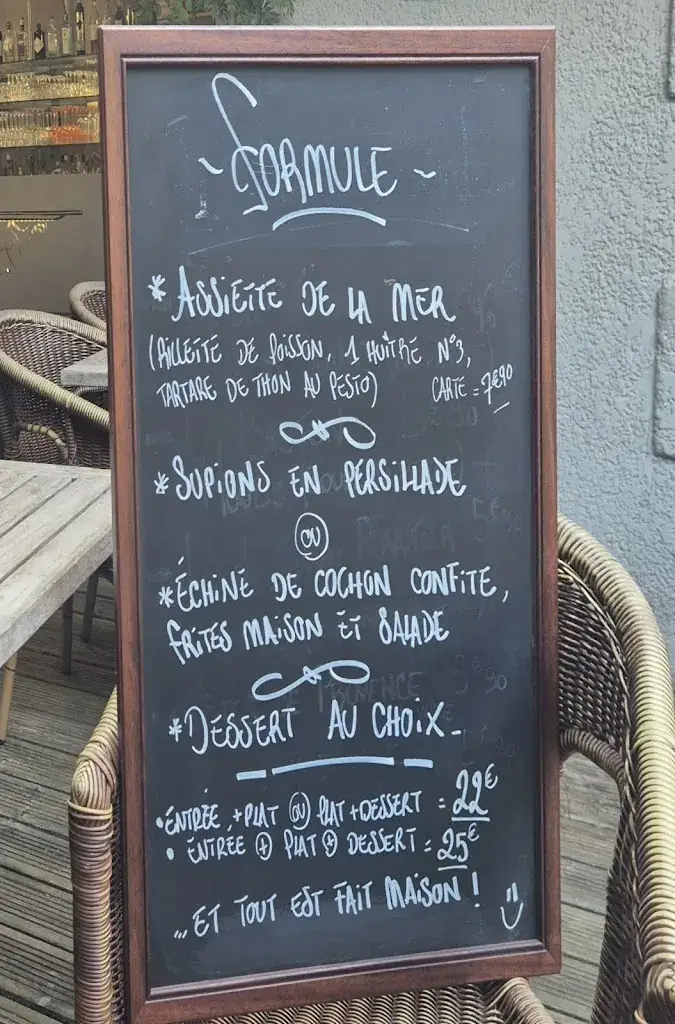 ~ FORMULE ~
* ASSIETTE DE LA MER
(RILLETTE DE POISSON, 1 HUÎTRE N°3,
TARTARE DE THON AU PESTO) CARTE = 7€90
* SUPIONS EN PERSILLADE
OU
* ÉCHINE DE COCHON CONFITE,
FRITES MAISON ET SALADE
* DESSERT AU CHOIX_
• ENTRÉE + PLAT OU PLAT + DESSERT = 22€
• ENTRÉE + PLAT + DESSERT = 25€
... ET TOUT EST FAIT MAISON !